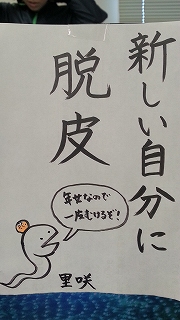 新しい自分に
脱皮
年女なので
一皮むけるぞ!
里咲